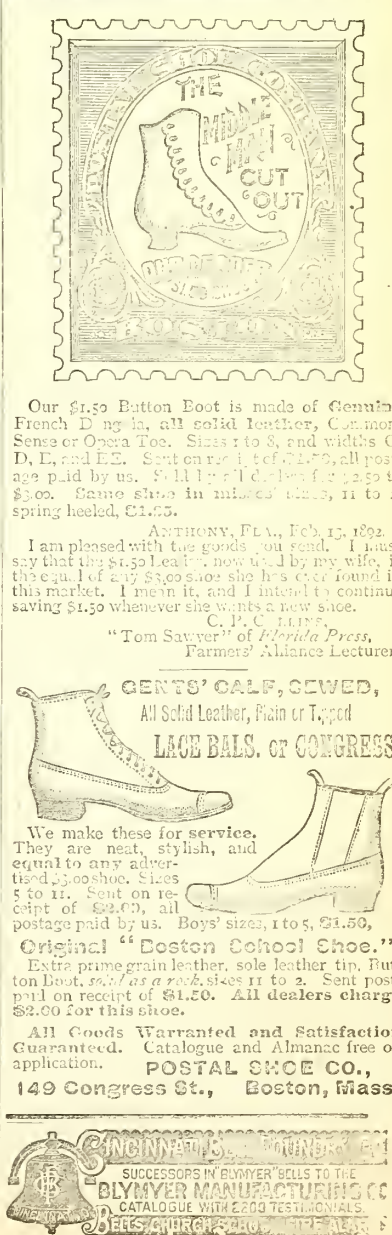 POSTAL SHOE COMPANY
THE
MIDDLE
MAN
CUT
OUT
BOSTON
Our $1.50 Button Boot is made of Genuin
French Dongola, all solid leather, Common
Sense or Opera Toe. Sizes 1 to 8, and widths C
D, E, and EE. Sent on receipt of all post
age paid by us. Sold by all dealers for $2.50 t
$3.00. Same shoe in misses' sizes, 11 to
spring heeled,
ANTHONY, FLA., Feb. 13, 1892.
I am pleased with the goods you send. I mus
say that the $1.50 now used by my wife, i
the equal of any $3.00 shoe she has ever found i
this market. I mean it, and I intend to continu
saving $1.50 whenever she wants a new shoe.
C. P. COLLINS,
"Tom Sawyer" of Florida Press,
Farmers' Alliance Lecturer
GENTS' CALF, SEWED,
All Solid Leather, Plain or Tipped
LACE BALS. or CONGRESS
We make these for service.
They are neat, stylish, and
equal to any adver-
tised $3.00 shoe. Sizes
5 to 11. Sent on re-
ceipt of $2.00, all
postage paid by us. Boys' sizes, 1 to 5, $1.50,
Original "Boston School Shoe."
Extra prime grain leather, sole leather tip, But
ton Boot, solid as a rock, sizes 11 to 2. Sent post
paid on receipt of $1.50. All dealers charg
$2.00 for this shoe.
All Goods Warranted and Satisfactio
Guaranteed. Catalogue and Almanac free o
application. POSTAL SHOE CO.,
149 Congress St., Boston, Mass
CINCINNATI BELL FOUNDRY
SUCCESSORS IN "BLYMYER" BELLS TO THE
BLYMYER MANUFACTURING CO
CATALOGUE WITH 2200 TESTIMONIALS.
BELLS, CHURCH, SCHOOL, FIRE ALAR